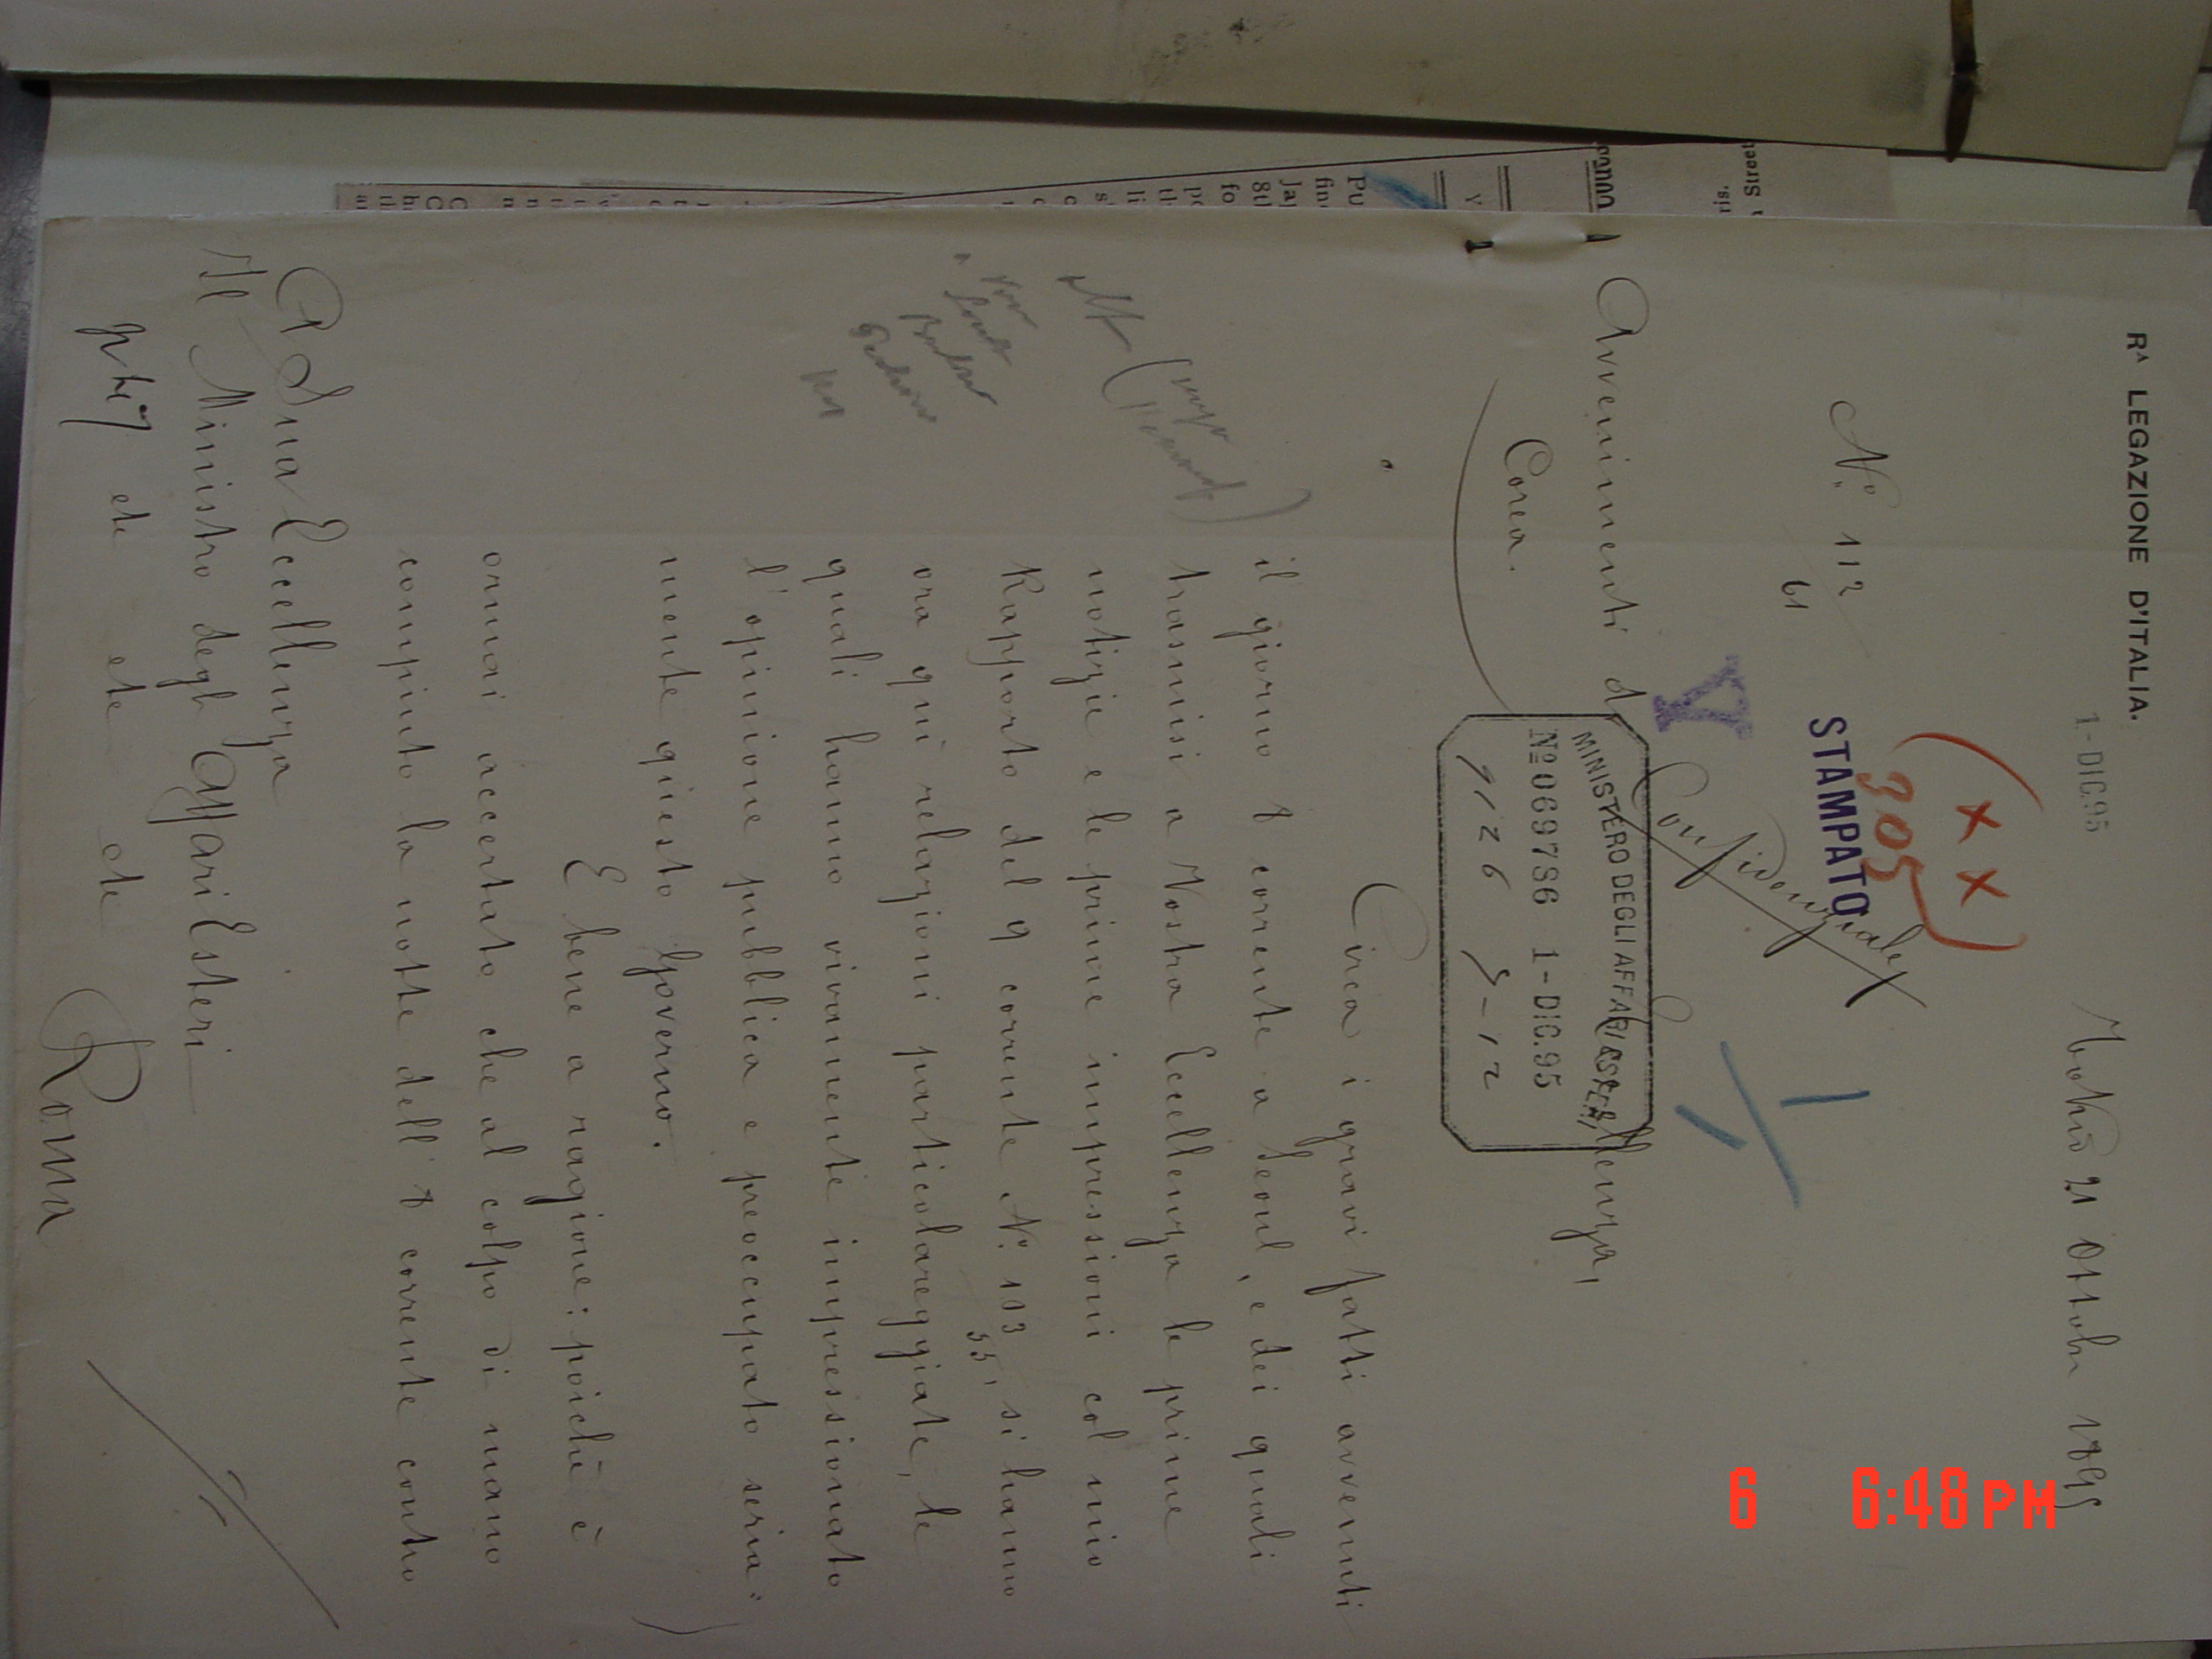 Rᴬ LEGAZIONE D'ITALIA.
1-DIC.95
21 Ottobre 1895
(XX)
305
Nº 112
61
STAMPATO
Confidenziale
V
Avvenimenti di
Corea.
MINISTERO DEGLI AFFARI ESTERI
Nº 069736 1-DIC.95
9126 5-12
Eccellenza,
Circa i gravi fatti avvenuti
il giorno 8 corrente a Seoul, e dei quali
trasmisi a Vostra Eccellenza le prime
notizie e le prime impressioni col mio
Rapporto del 9 corrente Nº 103, si hanno
55
ora quì relazioni particolareggiate, le
quali hanno vivamente impressionato
l'opinione pubblica e preoccupato seria-
mente questo Governo.
E bene a ragione: poichè è
ormai accertato che al colpo di mano
compiuto la notte dell'8 corrente contro
A Sua Eccellenza
Il Ministro degli Affari Esteri
etc etc etc
Roma
6 6:48 PM